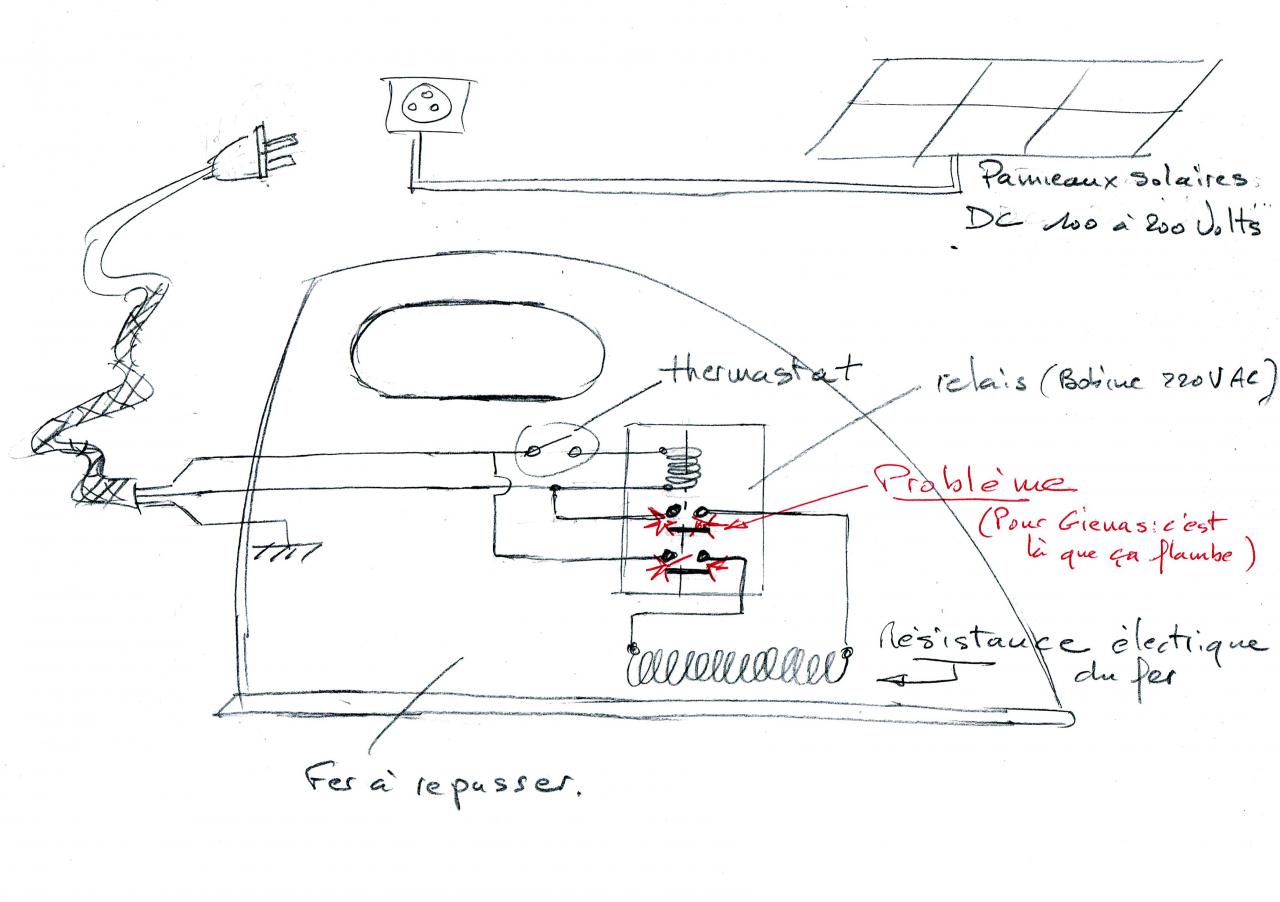 Panneaux solaires
DC 100 à 200 Volts
thermastat
relais (Bobine 220V AC)
Problème
(Pour Gienas: c'est
là que ça flambe)
Résistance électrique
du fer
Fer à repasser.